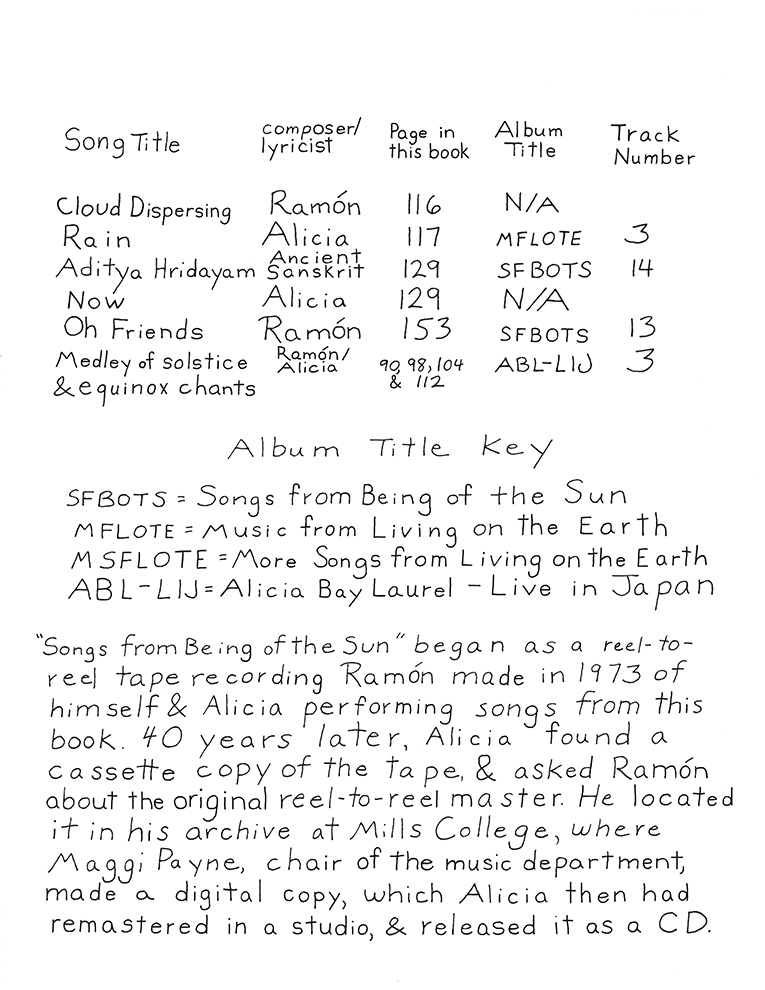 Song Title composer/ lyricist Page in this book Album Title Track Number
Cloud Dispersing Ramón 116 N/A
Rain Alicia 117 MFLOTE 3
Aditya Hridayam Ancient Sanskrit 129 SFBOTS 14
Now Alicia 129 N/A
Oh Friends Ramón 153 SFBOTS 13
Medley of solstice Ramón/ Alicia 90, 98, 104 & 112 ABL-LIJ 3
& equinox chants
Album Title Key
SFBOTS = Songs from Being of the Sun
MFLOTE = Music from Living on the Earth
MSFLOTE = More Songs from Living on the Earth
ABL-LIJ = Alicia Bay Laurel - Live in Japan
"Songs from Being of the Sun" began as a reel-to-
reel tape recording Ramón made in 1973 of
himself & Alicia performing songs from this
book. 40 years later, Alicia found a
cassette copy of the tape, & asked Ramón
about the original reel-to-reel master. He located
it in his archive at Mills College, where
Maggi Payne, chair of the music department,
made a digital copy, which Alicia then had
remastered in a studio, & released it as a CD.